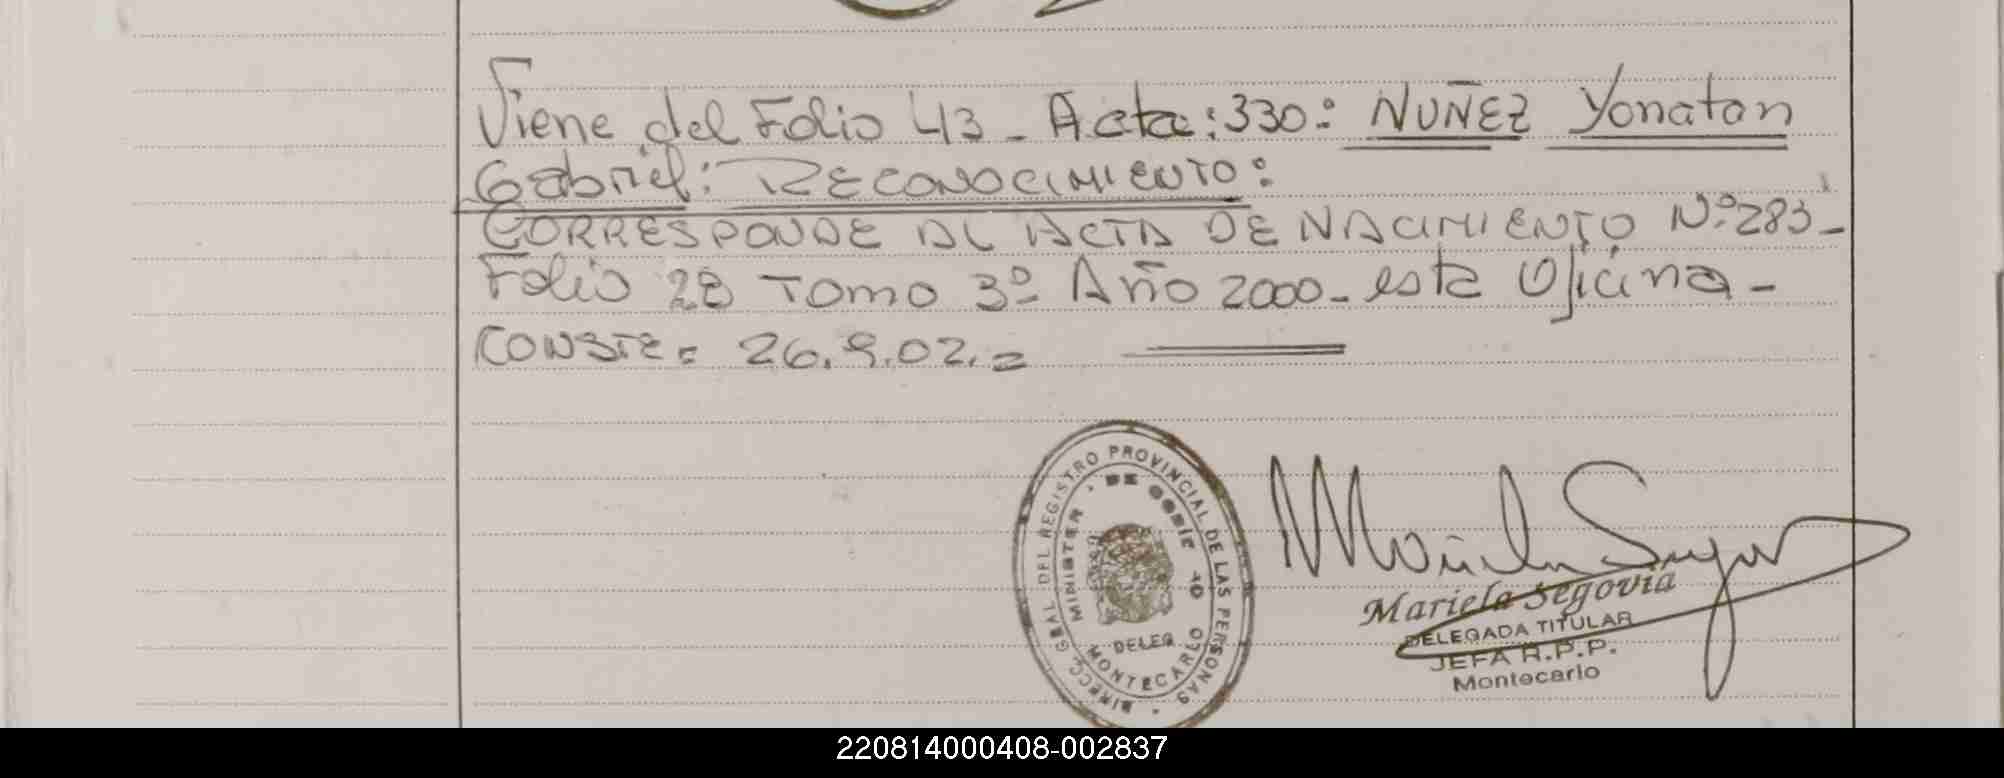 Viene del Folio 43 - Acta: 330: NUÑEZ Yonatan
Gabriel: RECONOCIMIENTO:
CORRESPONDE AL ACTA DE NACIMIENTO Nº 283-
Folio 28 Tomo 3º Año 2000 - esta Oficina -
CONSTE = 26.9.02. =
DIRECC. GRAL. DEL REGISTRO PROVINCIAL DE LAS PERSONAS
MINISTER DE GOBIE
DELEG
MONTECARLO
Mariela Segovia
DELEGADA TITULAR
JEFA R.P.P.
Montecarlo
220814000408-002837